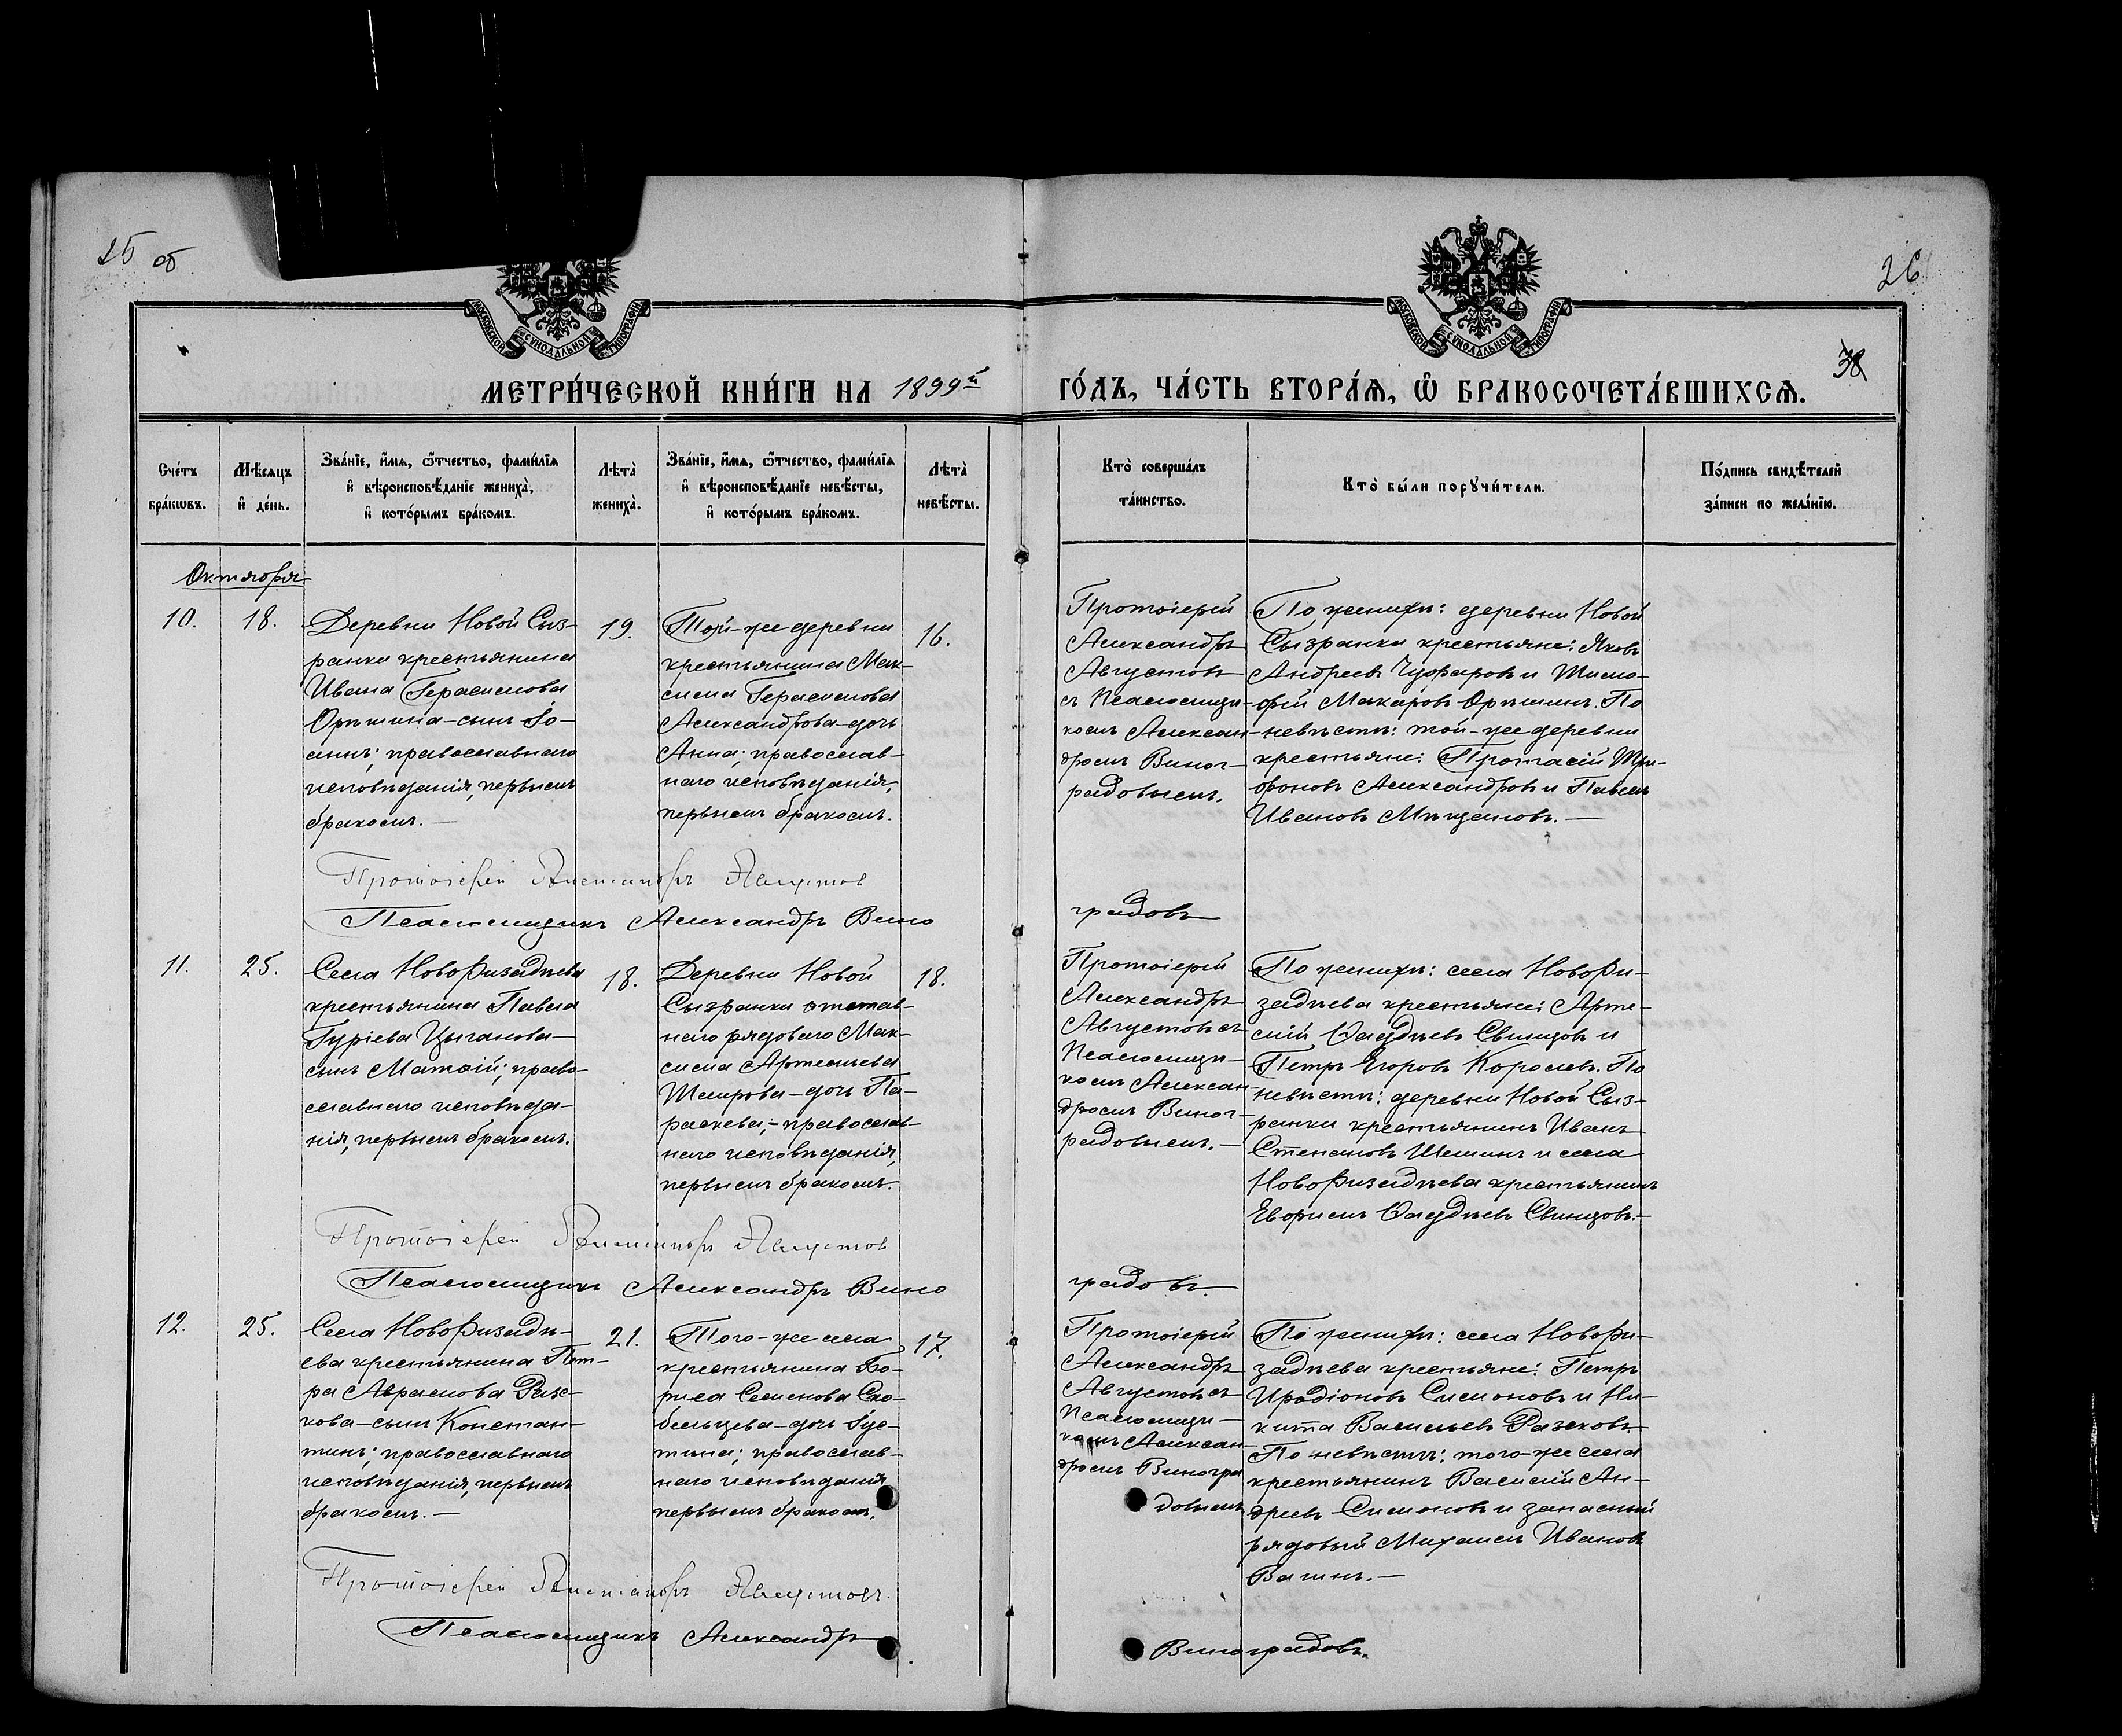 25 об
26
38
МОСКОВСКОЙ СѴНОДАЛЬНОЙ ТИПОГРАФІИ
МОСКОВСКОЙ СѴНОДАЛЬНОЙ ТИПОГРАФІИ
МЕТРИ́ЧЕСКОЙ КНИ́ГИ НА 1899й
ГО́ДЪ, ЧА́СТЬ ВТОРА́Ѧ, Ѽ БРАКОСОЧЕТА́ВШИХСѦ.
Сче́тъ
бра́кѡвъ.
Мѣ́сяцъ
и҆ де́нь.
Зва́нїе, и҆́мѧ, ѻ҆́тчество, фами́лїѧ
и҆ вѣроисповѣ́данїе жениха̀,
и҆ кото́рымъ бра́комъ.
Лѣта̀
жениха̀.
Зва́нїе, и҆́мѧ, ѻ҆́тчество, фами́лїѧ
и҆ вѣроисповѣ́данїе невѣ́сты,
и҆ кото́рымъ бра́комъ.
Лѣта̀
невѣ́сты.
Кто̀ соверша́лъ
та́инство.
Кто̀ бы́ли порꙋчи́тели.
По́дпись свидѣ́телей
за́писи по жела́нїю.
Октября
10.
18.
Деревни Новой Сыз-
ранки крестьянина
Ивана Герасимова
Оришина - сынъ Іо-
аннъ; православнаго
исповѣданія, первымъ
бракомъ. —
19.
Той-же деревни
крестьянина Мак-
сима Герасимова
Александрова - дочь
Анна; православ-
наго исповѣданія,
первымъ бракомъ.
16.
Протоіерей
Александръ
Августовъ
съ Псаломщи-
комъ Алексан-
дромъ Виног-
радовымъ.
По женихѣ: деревни Новой
Сызранки крестьяне: Яковъ
Андреевъ Чуфаровъ и Тимо-
фей Макаровъ Оришинъ. По
невѣстѣ: той-же деревни
крестьяне: Протасій Три-
фоновъ Александровъ и Павелъ
Ивановъ Мѣщановъ. —
Протоіерей Александръ Августов
Псаломщикъ Александръ Вино
градовъ
11.
25.
Села Новофизадѣева
крестьянина Павла
Гуріева Цыганова -
сынъ Матѳій; право-
славнаго исповѣда-
нія, первымъ бракомъ.
18.
Деревни Новой
Сызранки отстав-
наго рядоваго Мак-
сима Артемьева
- дочь Па-
раскева; - православ-
наго исповѣданія,
первымъ бракомъ.
18.
Протоіерей
Александръ
Августовъ съ
Псаломщи-
комъ Алексан-
дромъ Виног-
радовымъ. -
По женихѣ: села Новофи-
задѣева крестьяне: Арте-
мій Ѳаддѣевъ Свинцовъ и
Петръ Егоровъ Королевъ. По
невѣстѣ: деревни Новой Сыз-
ранки крестьянинъ Иванъ
Степановъ Шешинъ и села
Новофизадѣева крестьянинъ
Евфимъ Ѳаддѣевъ Свинцовъ. -
Протоіерей Александръ Августов
Псаломщикъ Александръ Вино
градовъ.
12.
25.
Села Новофизадѣ-
ева крестьянина Пет-
ра Аврамова Разс-
кова - сынъ Констан-
тинъ; православнаго
исповѣданія, первымъ
бракомъ. —
21.
Того-же села
крестьянина Бо-
риса Семенова Ско-
бельцева - дочь Іус-
тина; православ-
наго исповѣданія
первымъ бракомъ.
17.
Протоіерей
Александръ
Августовъ съ
Псаломщи-
комъ Алексан-
дромъ Виногра
довымъ
По женихѣ: села Новофи-
задѣева крестьяне: Петръ
Иродіоновъ Симоновъ и Ни-
кита Васильевъ Разсковъ.
По невѣстѣ: того-же села
крестьянинъ Василій Ан-
дреевъ Симоновъ и запасный
рядовый Михаилъ Ивановъ
Вагинъ. —
Протоіерей Александръ Августовъ.
Псаломщикъ Александръ
Виноградовъ.